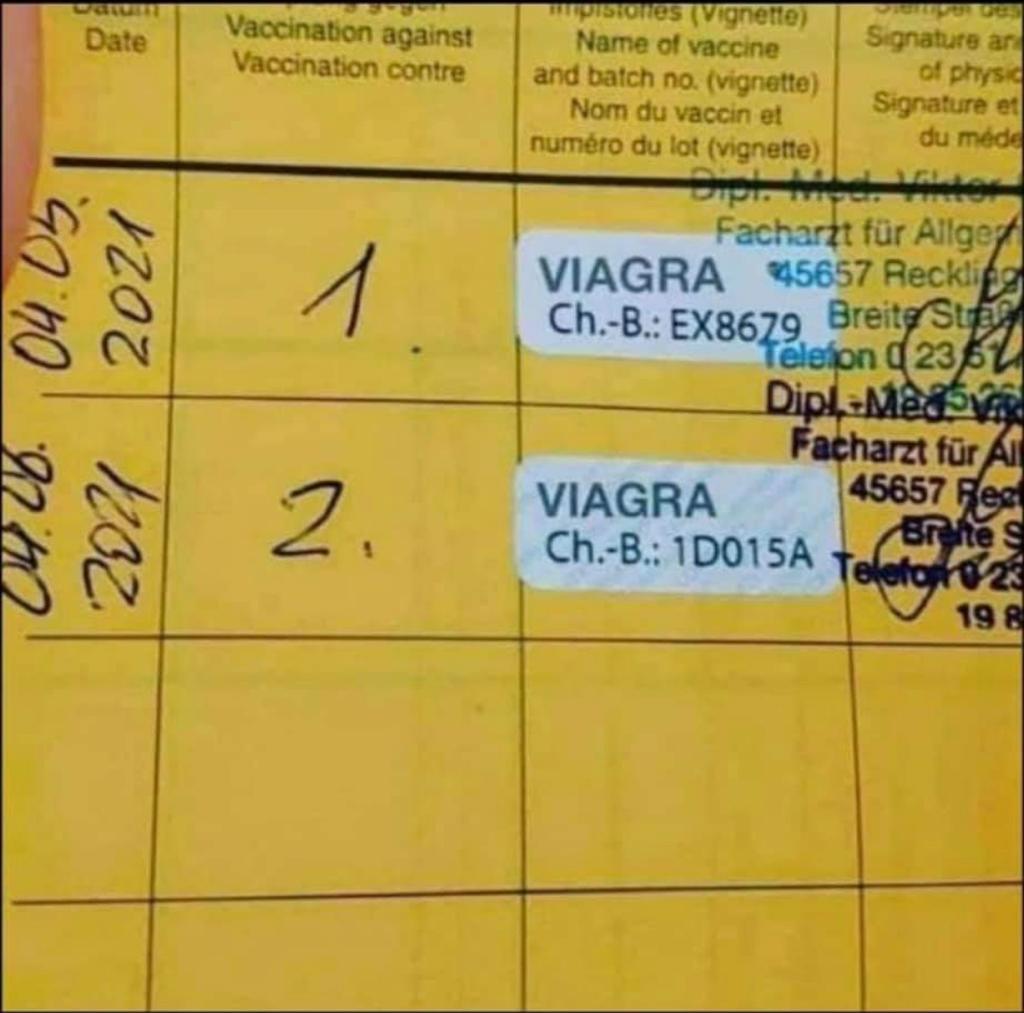 Datum
Date
Vaccination against
Vaccination contre
Impfstoffes (Vignette)
Name of vaccine
and batch no. (vignette)
Nom du vaccin et
numéro du lot (vignette)
Stempel des
Signature an
of physic
Signature et
du méde
04.05.
2021
1.
VIAGRA
Ch.-B.: EX8679
Dipl. Med. Viktor
Facharzt für Allgem
45657 Reckling
Breite Straß
Telefon 0 23 61
04.06.
2021
2.
VIAGRA
Ch.-B.: 1D015A
Dipl.-Med. Vik
Facharzt für All
45657 Reck
Breite S
Telefon 0 23
19 8